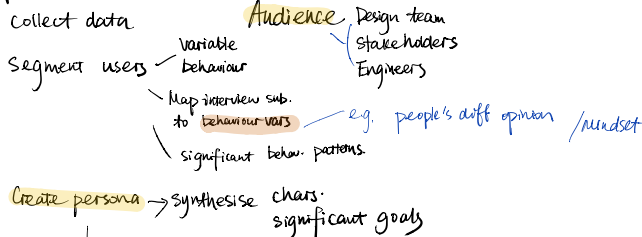 collect data
Audience
Design team
Stakeholders
Engineers
Segment users
variable
behaviour
Map interview sub.
to behaviour vars
e.g. people's diff opinion /mindset
significant behav. patterns.
Create persona → synthesise chars.
significant goals